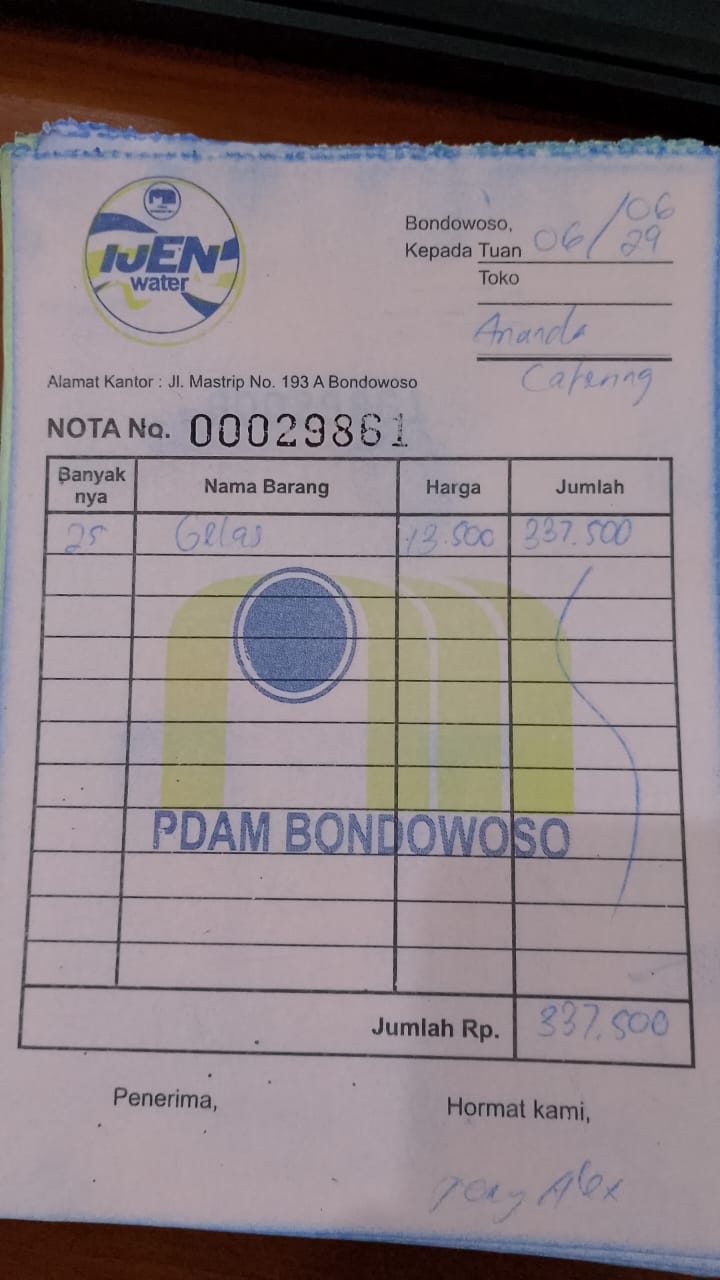 IJEN
water
Bondowoso, 06/06
Kepada Tuan 29
Toko
Ananda
Catering
Alamat Kantor : Jl. Mastrip No. 193 A Bondowoso
NOTA No. 00029861
Banyak nya Nama Barang Harga Jumlah
25 Gelas 13.500 337.500
PDAM BONDOWOSO
Jumlah Rp. 337.500
Penerima, Hormat kami,
Alex